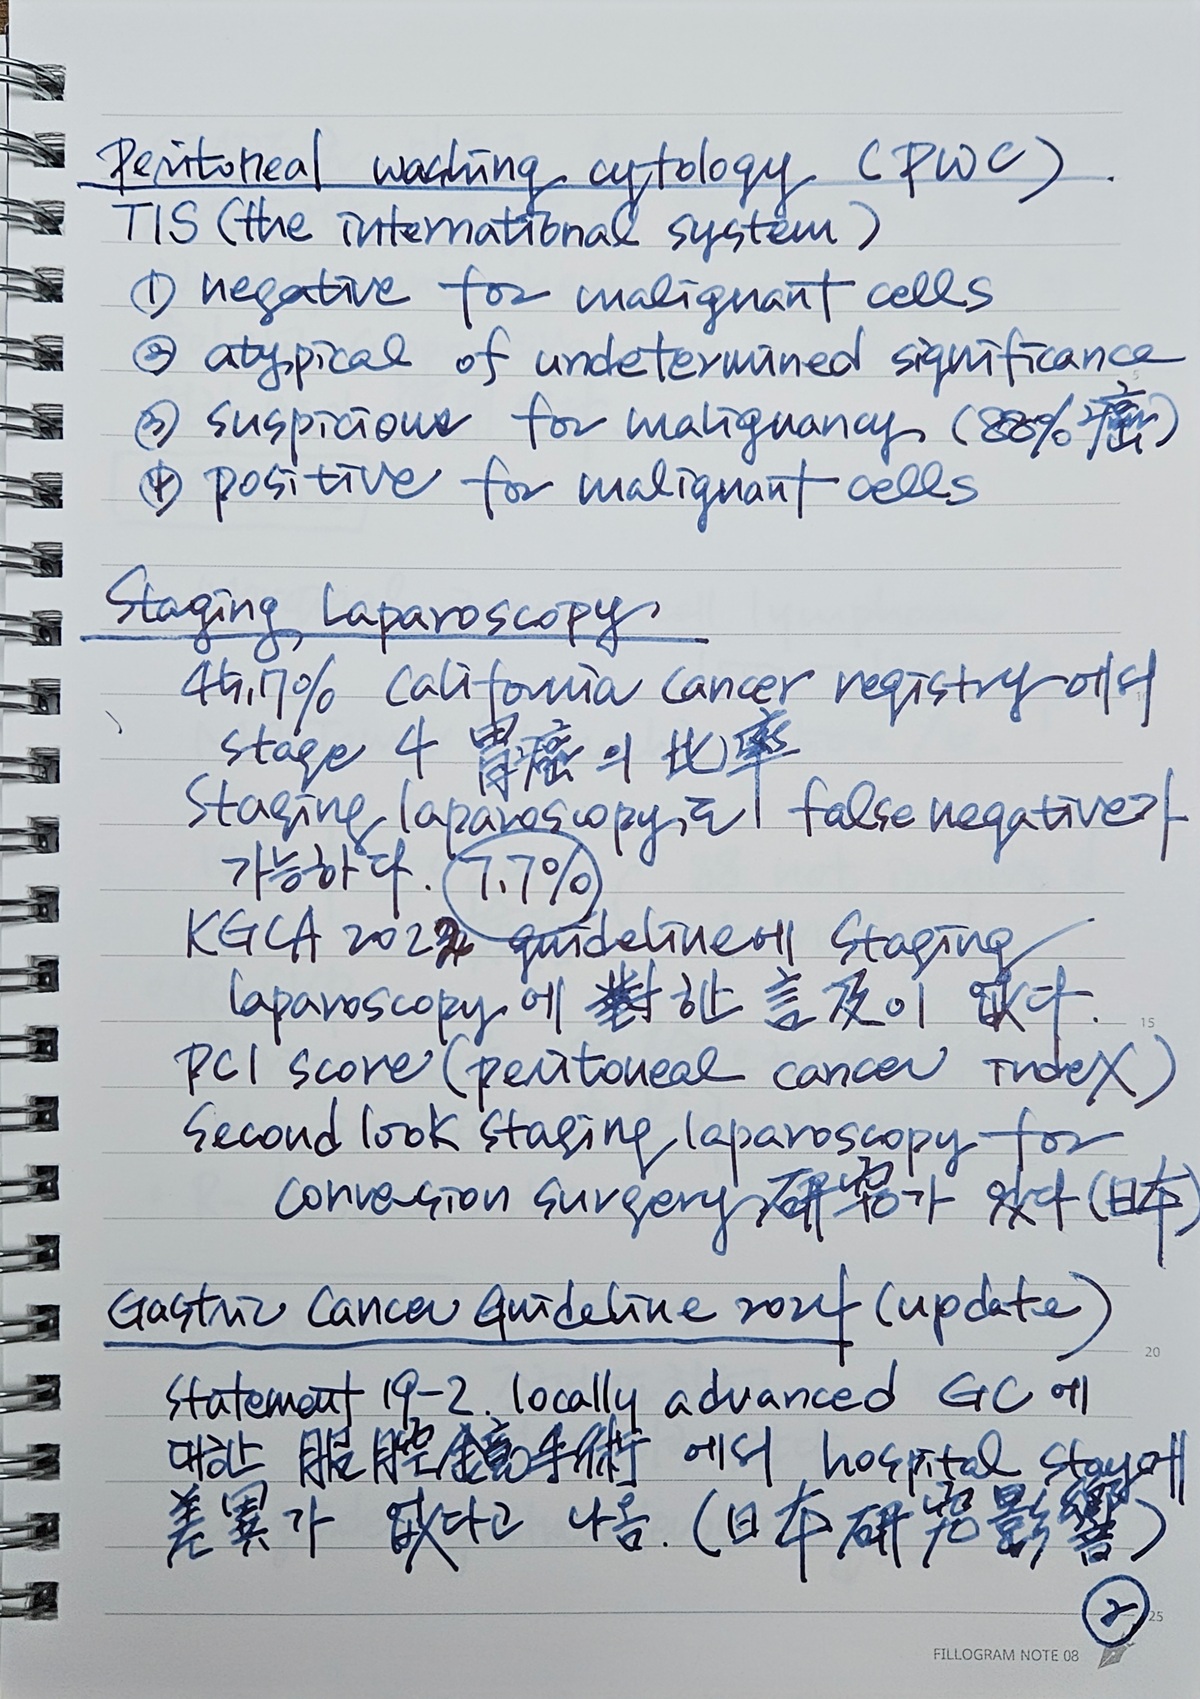 Peritoneal washing cytology (PWC).
TIS (the international system)
① negative for malignant cells
② atypical of undetermined significance
③ suspicious for malignancy (88% 癌)
④ positive for malignant cells
Staging laparoscopy
45.17% California cancer registry에서
stage 4 胃癌의 比率
Staging laparoscopy도 false negative가
가능하다. 7.7%
KGCA 2022 guideline에 staging
laparoscopy에 對한 言及이 없다.
PCI score (peritoneal cancer index)
Second look staging laparoscopy for
conversion surgery 研究가 있다 (日本)
Gastric Cancer Guideline 2024 (update)
Statement 19-2. locally advanced GC에
대한 腹腔鏡手術에서 hospital stay에
差異가 없다고 나옴. (日本 研究影響)
②
5
10
15
20
25
FILLOGRAM NOTE 08